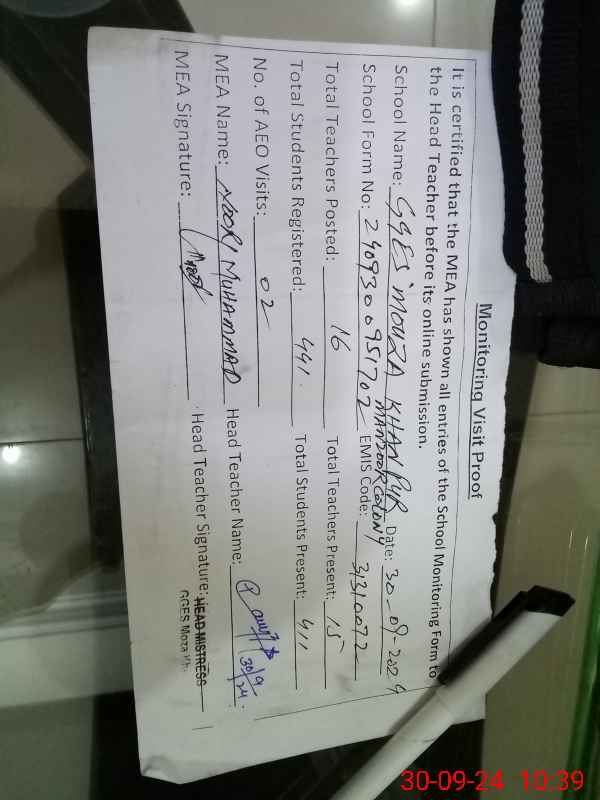 Monitoring Visit Proof
It is certified that the MEA has shown all entries of the School Monitoring Form to
the Head Teacher before its online submission.
School Name: GGES MOUZA KHANPUR Date: 30-09-2024
MANZOOR COLONY
School Form No: 2409300951702 EMIS Code: 31310072
Total Teachers Posted: 16 Total Teachers Present: 15
Total Students Registered: 441. Total Students Present: 411
No. of AEO Visits: 02
MEA Name: NOORI MUHAMMAD Head Teacher Name:
30/9/24.
MEA Signature: Head Teacher Signature: HEAD MISTRESS
GGES Moza Kh
30-09-24 10:39